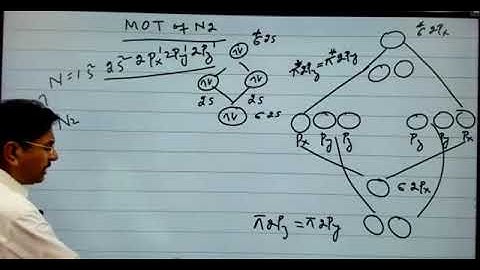 MOT of N2
N = 1s² 2s² 2Px¹ 2Py¹ 2Pz¹
N2
*σ2s
↑↓
↑↓ ↑↓
2s 2s
↑↓ σ2s
*σ2Px
π*2Py = π*2Pz
Px Py Pz Pz Py Px
σ2Px
π2Py = π2Pz